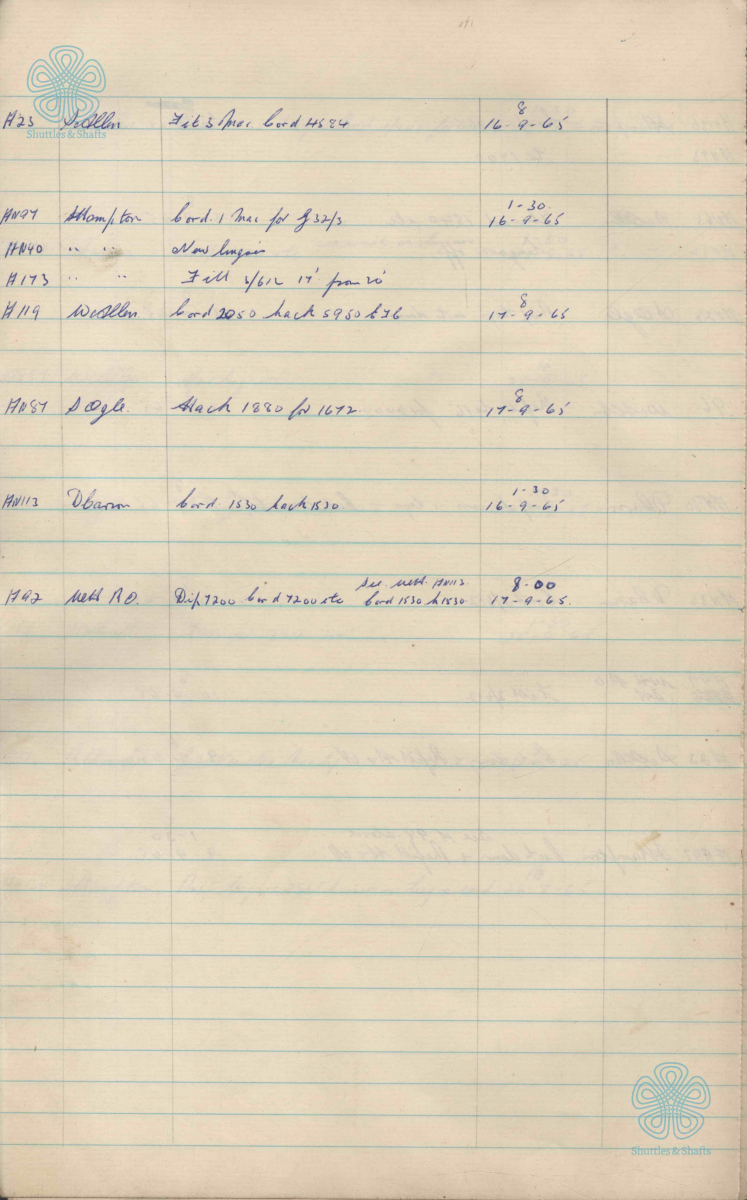 8
H23 S Allen Fit 3 Mac. Cord 4584 16-9-65
Shuttles & Shafts
1-30.
HN97 Hampton Cord. 1 Mac for G 32/3 16-9-65
HN40 " " New lingoes
H173 " " Fill 3/612 17' from 20'
8
H119 W Allen Cord 2050 hack 5950 t76 17-9-65
8
HN87 S Ogle. Hack 1880 for 1672. 17-9-65
1-30
HN113 D Barson Cord. 1530 hack 1530. 16-9-65
See. Nett. HN113. 8-00
H92 Nett R O. Dip 7200 Cord 7200 etc Cord 1530 h 1530 17-9-65.
Shuttles & Shafts